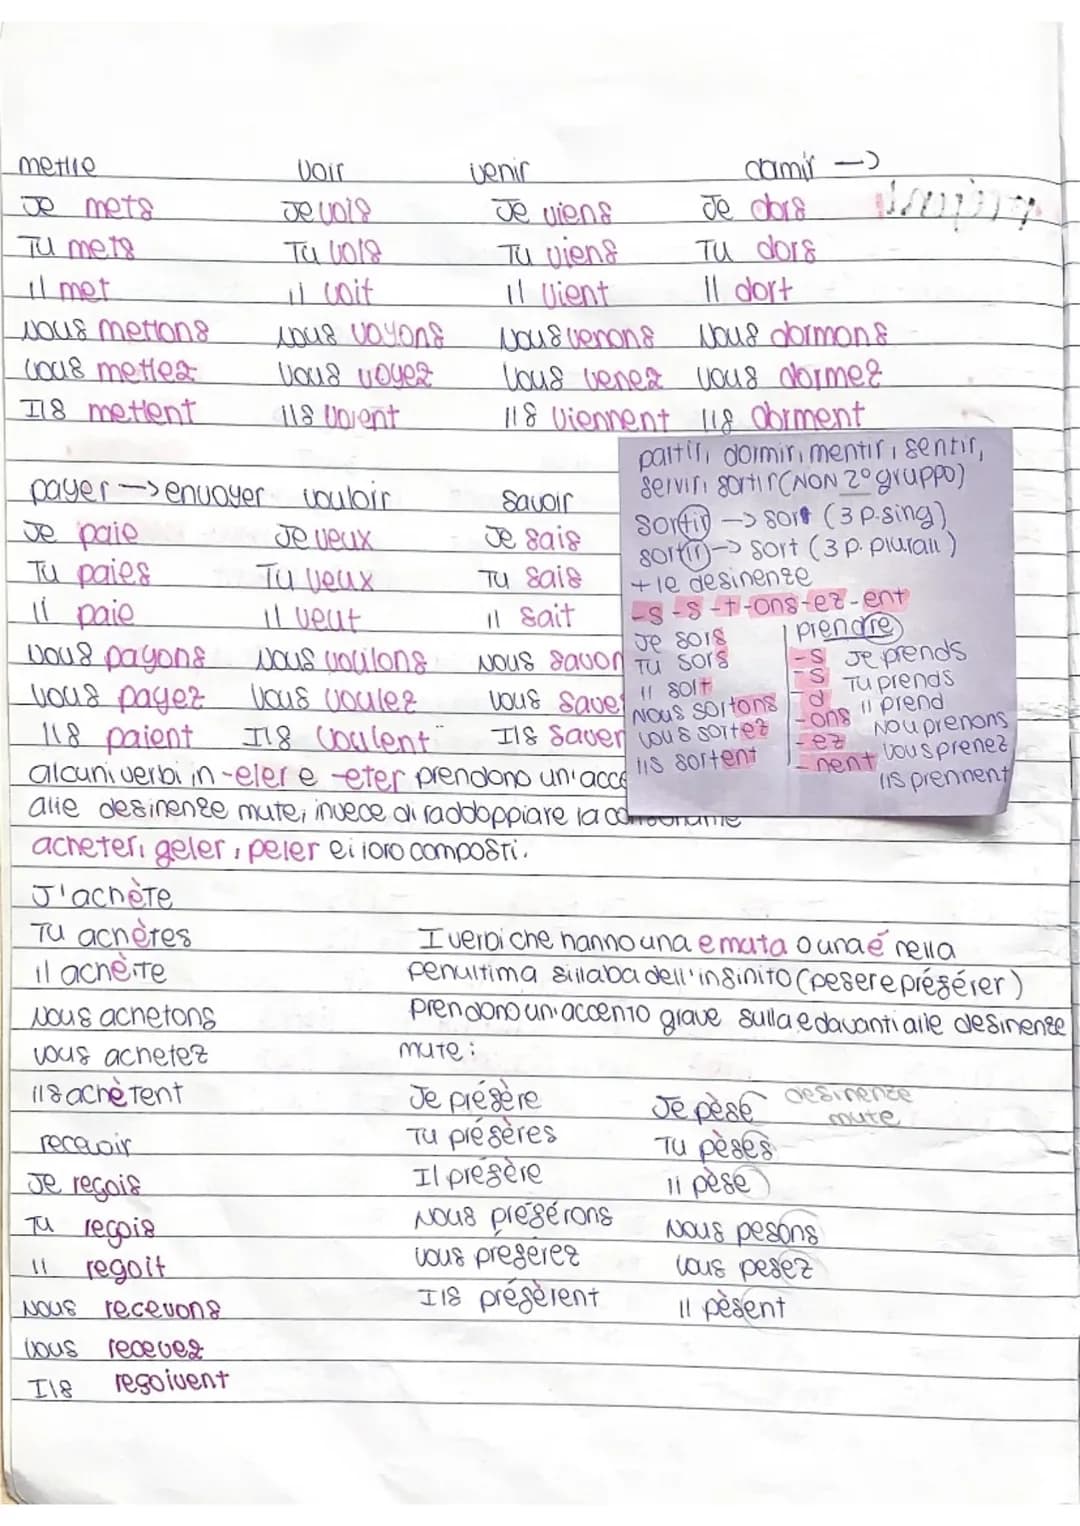 mettre voir venir dormir —>
Je mets Je vois Je viens Je dors
Tu mets Tu vois Tu viens Tu dors
il met il voit il vient Il dort
Nous mettons Nous voyons Nous venons Nous dormons
Vous mettez Vous voyez Vous venez Vous dormez
Ils mettent Ils voient Ils viennent Ils dorment
payer —> envoyer vouloir savoir
Je paie Je veux Je sais
Tu paies Tu veux Tu sais
il paie il veut il sait
Vous payons Nous voulons Nous savon
Vous payez Vous voulez Vous save
Ils paient Ils voulent Ils saven
partir, dormir, mentir, sentir,
servir, sortir (NON 2° gruppo)
sortir —> sort (3 p. sing)
sortir —> sort (3 p. plurali)
+ le desinenze
-s -s -t -ons -ez -ent
Je sors
Tu sors
Il sort
Nous sortons
Vous sortez
ils sortent
prendre
-s Je prends
-s Tu prends
d il prend
-ons Nou prenons
-ez Vous prenez
-nent ils prennent
alcuni verbi in -eler e -eter prendono un'acce
alle desinenze mute, invece di raddoppiare la consonante
acheter, geler, peler e i loro composti.
J'achète
Tu achètes
il achète
Nous achetons
vous achetez
ils achètent
I verbi che hanno una e muta o una é nella
penultima sillaba dell'infinito (peser e préférer)
prendono un'accento grave sulla e davanti alle desinenze
mute:
Je préfère Je pèse desinenze
mute
Tu préfères Tu pèses
Il préfère il pèse
Nous préférons Nous pesons
vous préférez vous pesez
Ils préfèrent Il pèsent
recevoir
Je reçois
Tu reçois
il reçoit
Nous recevons
Vous recevez
Ils reçoivent